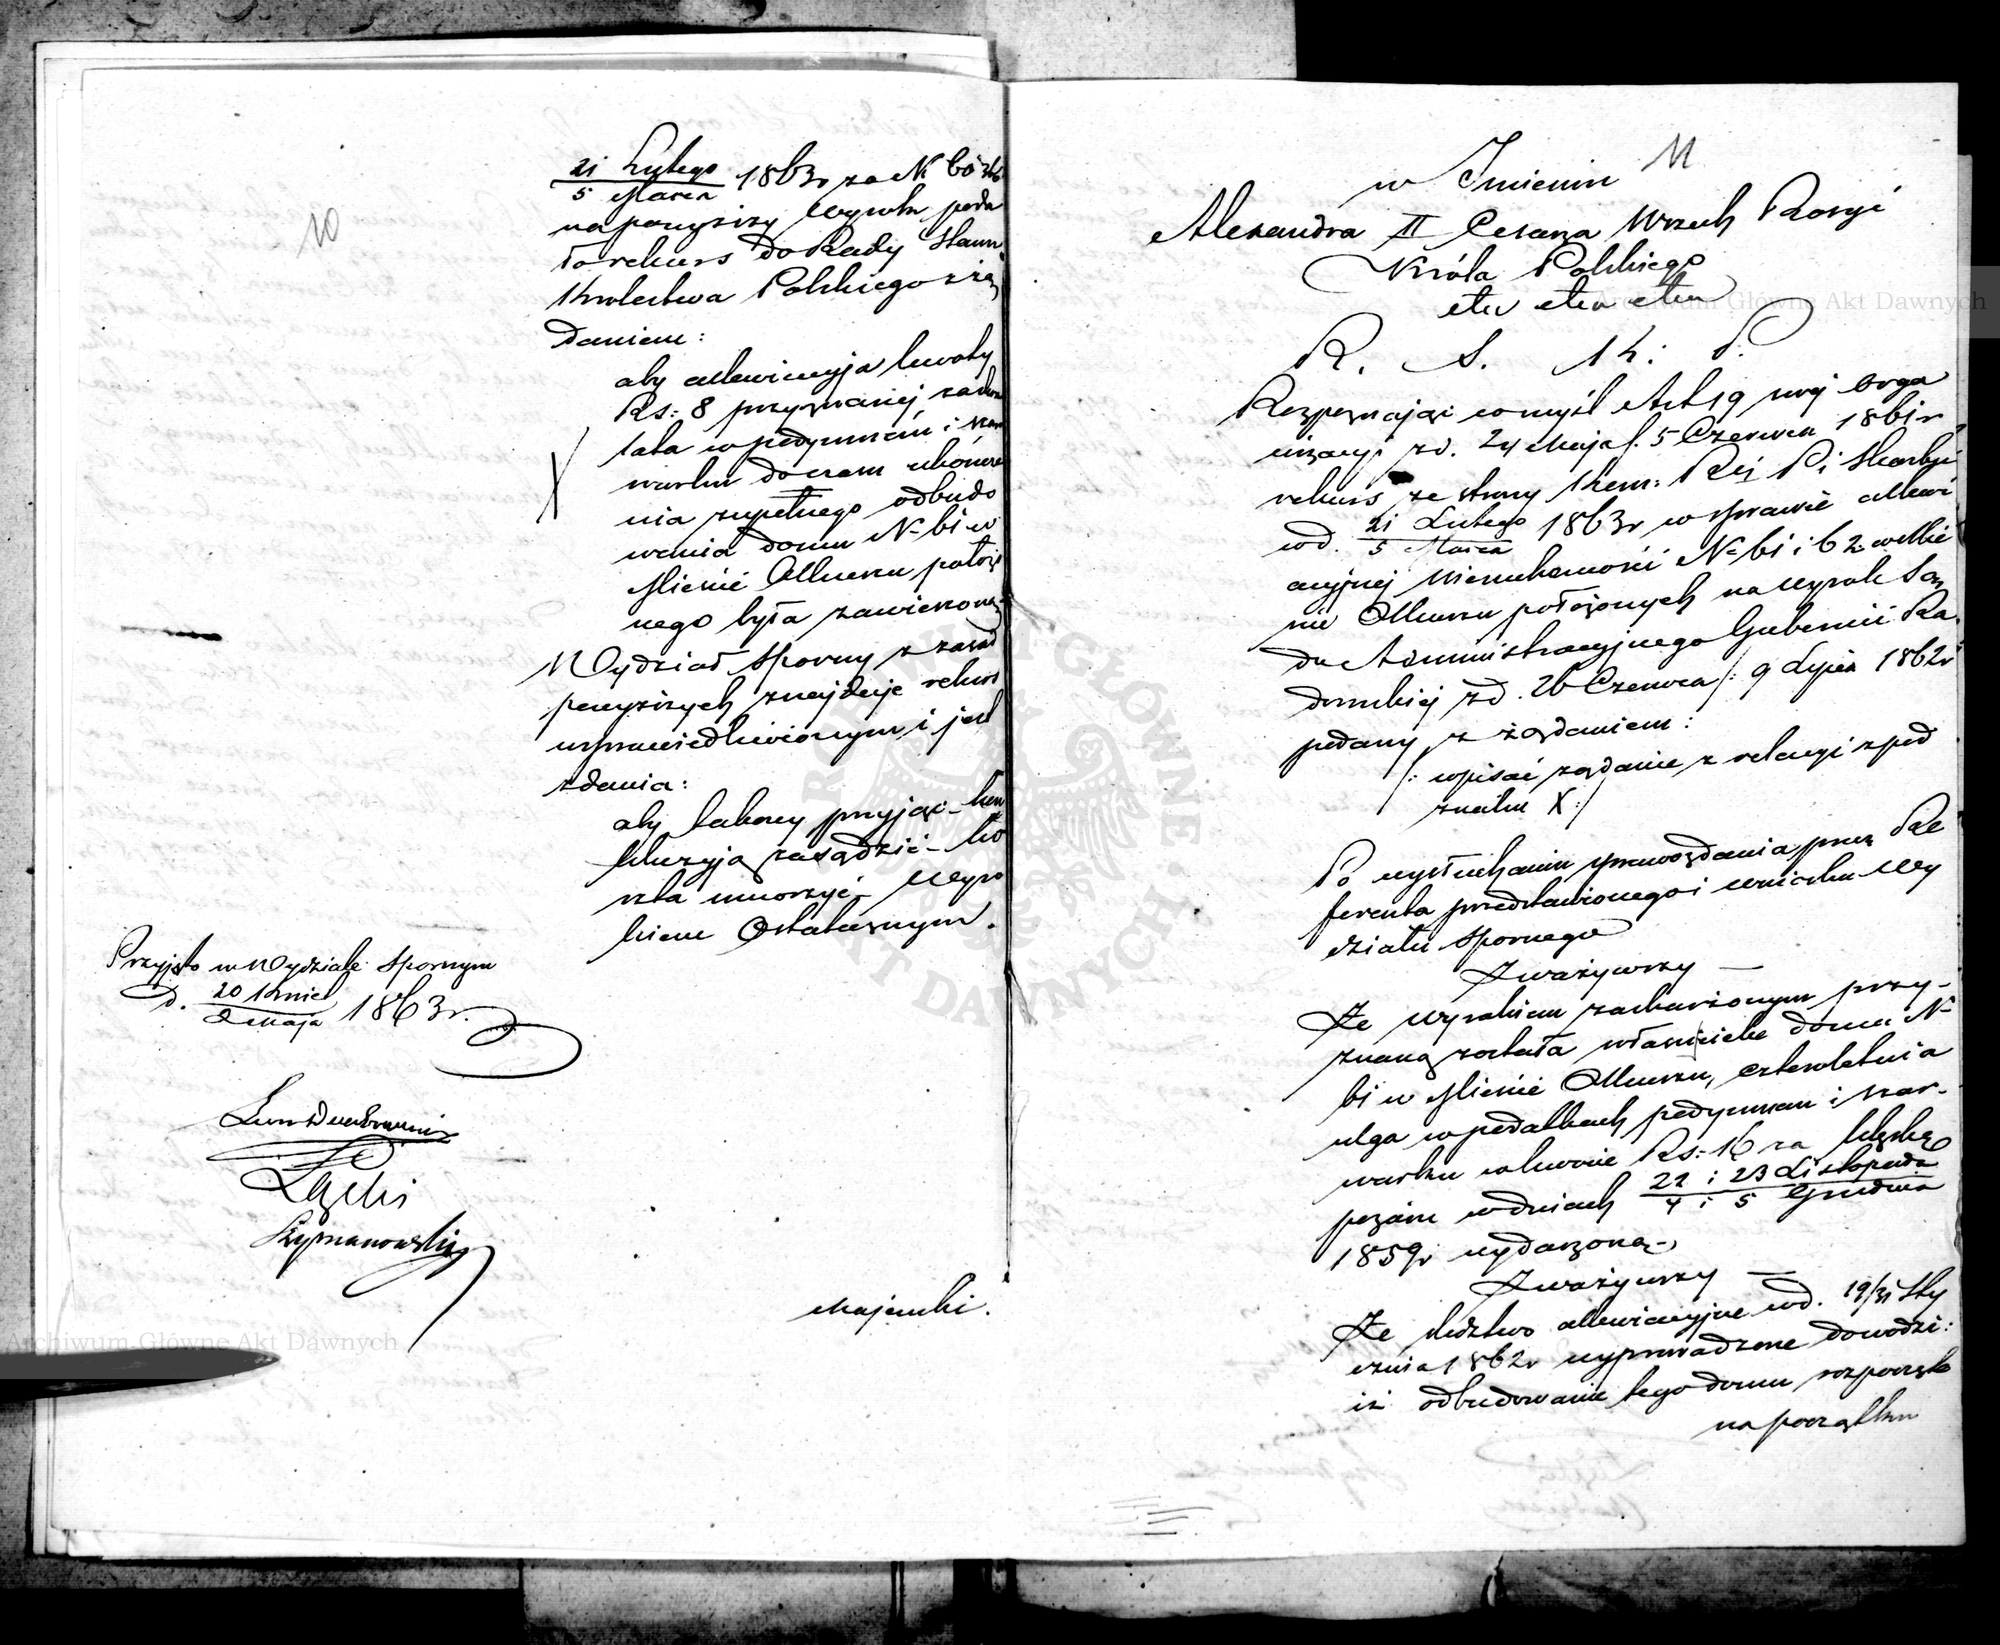 10
21 Lutego
5 Marca 1863r za N 60
na powyższy Wyrok poda
ło rekurs do Rady Stanu
Królestwa Polskiego z żą
daniem:
aby allewiacyja kwoty
Rs: 8 przyznanej
tata w podymném i szar
X warku do czasu ukończe
nia zupełnego odbudo
wania domu N 61 w
Mieście Olkuszu położo
nego była zawieszoną.
Wydział Sporny z zasad
powyższych znajduje rekurs
usprawiedliwionym i jest
zdania:
aby takowy przyjąć – kon
kluzyją zasądzić – ko
szta umorzyć – Wyro
kiem Ostatecznym.
Przyjęto w Wydziale Spornym
d. 20 Kwiet
2 Maja 1863r.
Łącki
Szymanowski
Majewski.
11
w Imieniu
Alexandra II Cesarza Wszech Rosyi
Króla Polskiego
etc etc etc
R. S. K: P.
Rozpoznając w myśl Art 19 swej orga
nizacyi z d. 24 Maja /. 5 Czerwca 1861r
rekurs ze strony Kom: R: i P: Skarbu
w d. 21 Lutego
5 Marca 1863r w sprawie allewi
acyjnej Nieruchomości N 61 i 62 w Mie
ście Olkuszu położonych na Wyrok Są
du Administracyjnego Gubernii Ra
domskiej z d. 26 Czerwca /: 9 Lipca 1862r
podany z żądaniem:
/: wpisać żądanie z relacyi z pod
znaku X :/
Po wysłuchaniu sprawozdania przez Re
ferenta przedstawionego i wniosku Wy
działu Spornego
Zważywszy —
Że Wyrokiem zaskarżonym przy-
znaną została właściciel domu N
61 w Mieście Olkuszu, czteroletnia
ulga w podatkach podymnem i szar-
warku w kwocie Rs: 16 za klęskę
pożaru w dniach 22 i 23 Listopada
4 i 5 Grudnia
1859r wydarzoną –
Zważywszy —
Że śledztwo allewiacyjne w d. 19/31 Sty
cznia 1862r wyprowadzone dowodzi:
iż odbudowanie tego domu rozpoczęto
na początku
Archiwum Główne Akt Dawnych
Archiwum Główne Akt Dawnych